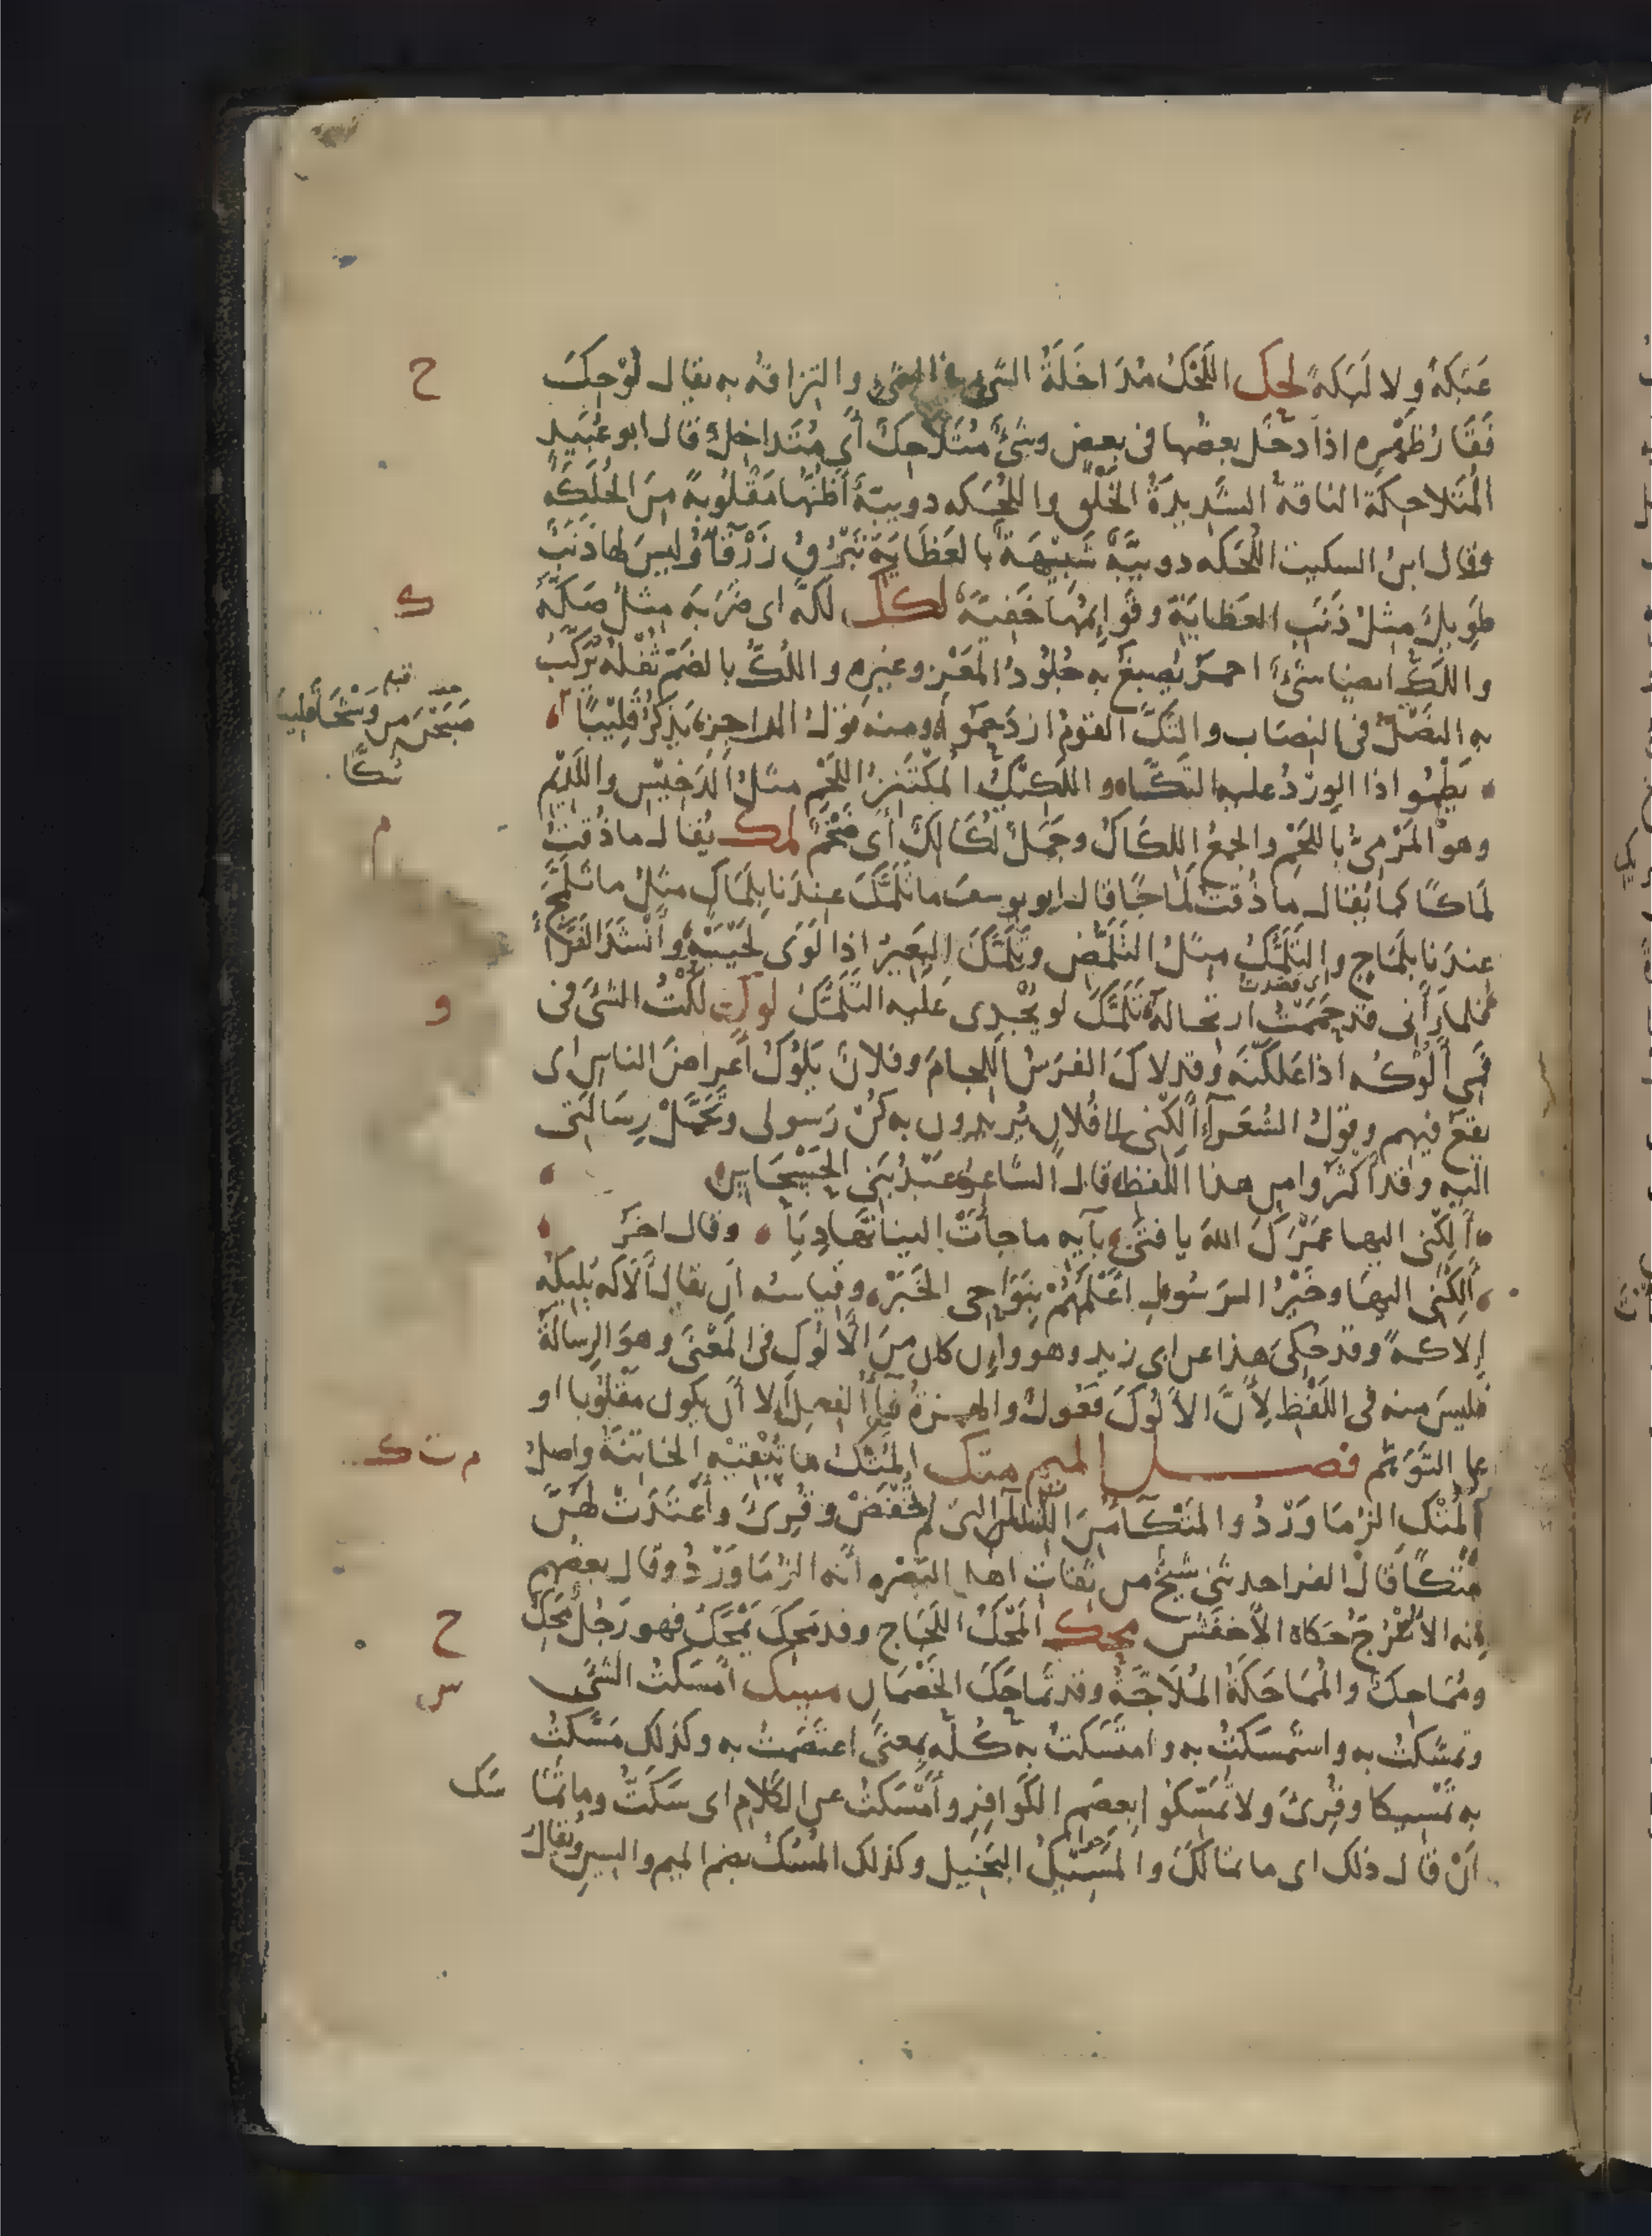 عَبَكَةً ولا لَبَكَةً لحك اللَحْكُ مُدَاخَلَةُ الشئ فى الشئ والتزاقه به يقال لُوْحِكَ
فَقَارُ ظَهْرِه اذا دخل بعضها فى بعض وشئ مُتَلاحِكٌ أى مُتَداخِلٌ قال ابو عُبَيد
المُتَلاحِكَة الناقة الشديدةُ الخَلْق واللُحَكه دويبّة أظنُّها مَقْلُوبةً من الحُلَكه
وقال ابن السكيت اللُحَكه دويبّة شَبِيْهَة بالعَظَايَة تَبْرُقُ زَرْقآءُ وليس لها ذَنَبٌ
طَوِيلٌ مثلُ ذَنَبِ العظاية وقَوايمُها خَفِيّة لكك لكّه اى ضَرَبه مثل صَكّه
واللَكّ ايضا شئ احمرُ يُصبغ به جُلُودُ المَعْز وغيره واللُكّ بالضم ثُفْلُهُ يُرَكَّبُ
به النَصْلُ فى النصاب والتَكَّ القومُ ازدَحَمُوا ومنه قول الراجز يَذكُرُ قَلِيْبًا
يَطْمُو اذا الوِرْدُ عليه التَكَّا واللَكِيْكُ المكتنِزُ اللَحْم مثلُ الدَخِيْسِ واللَدِيْم
وهو المَرْمىُّ باللَحْم والجمعُ اللِكَاكُ وجَمَلٌ لُكَالِكٌ أى ضَخْمٌ لمك يُقال ما ذُقتُ
لَمَاكًا كما يُقال ما ذُقتُ لَمَاجًا قال ابو يوسف ما تَلَمَّكَ عندَنا بلَمَاك مثلُ ما تَلَمَّجَ
عندَنا بلَمَاج والتَلَمُّكُ مثلُ التَلَمُّظ وتَلَمَّكَ البَعِيْرُ اذا لَوَى لَحْيَيْهِ وأنْشَدَ الفَرّاءُ
فلما رَأنى قد حَمَمْتُ ارتحاله تَلَمَّكَ لو يُجْدِى عَلَيه التَلَمُّكُ لوك لُكْتُ الشئَ فى
فَمِى ألُوكُه اذا عَلَكْتَه وقد لاكَ الفرسُ اللجامَ وفلانٌ يَلُوكُ أعراضَ الناس اى
يقعُ فيهم وقولُ الشُعَرآء ألِكْنى الى فُلانٍ يُريدون به كُنْ رَسولى وتحَمَّلْ رِسَالتى
اليه وقد اكثَرُوا من هذا اللفظ قال الشاعر عَبْدُ بَنى الحَسْحَاس
ألِكْنى اليها عَمْرَكَ اللهَ يا فتى بآيه ما جاءَتْ الينا تَهَادِيَا وقال اخرُ
ألِكْنى اليها وخَيْرُ الرَسُول أعْلَمُهُمْ بنَوَاحِى الخَبَرْ وقياسه ان يقال ألاكَه يُلِيكُه
إلاكةً وقد حكى هذا عن ابى زيد وهو وان كان من الألُوك فى المَعْنى وهو الرِسالَة
فليسَ منه فى اللَفْظ لأنّ الألُوكَ فَعُولٌ والهمزةُ فاءُ الفعل إلا أن يكون مَقْلُوبا او
على التَوَهُّم فصل الميم متك المُتْكُ ما تُبْقِيْه الخاتنةُ واصل
المُتْك الزُمَا وَرْدُ والمَتْكَآءُ من النسآء التى لم تُخْفَضْ وقُرِئ وأعْتَدَتْ لهُنَّ
مُتْكًا قال الفرا حدثنى شيخٌ من ثِقات اهل البَصْره أنّه الزُمَاوَرْدُ وقال بعضهم
إنه الأتْرُجّ حَكاه الأخْفَش محك المَحْكُ اللَجَاج وقد مَحَكَ يَمْحَكُ فهو رَجُلٌ مَحِكٌ
ومُمَاحِكٌ والمُمَاحَكَةُ المُلَاجّةُ وقد تَمَاحَكَ الخَصْمَان مسك أمْسَكتُ الشئَ
وتمسَّكتُ به واستَمسَكتُ به وامتَسَكتُ به كُلّه بمعنى اعتصَمتُ به وكذلك مَسَّكتُ
به تَمْسِيكا وقُرِئ ولا تُمَسِّكوا بعِصَمِ الكَوَافِر وأمْسَكتُ عن الكلام اى سَكَتُّ وما تَما
أنْ قال ذلك اى ما تمالَكَ والمَسِيْكُ البَخِيل وكذلك المُسُكُ بضم الميم والسين ويُقال
ح
ك
قبله
صَبَّحْنَ مِن وَشْحَا قَلِيبًا
سُكًّا
م
و
اى قصدتُ
م ت ك
ح
س
سَك